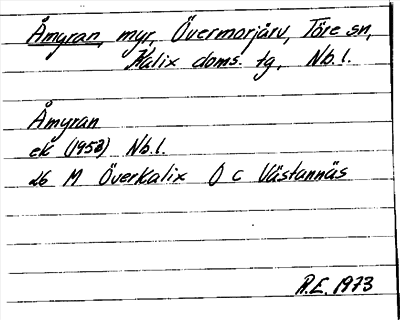 Åmyran, myr, Övermorjärv, Töre sn,
Kalix doms. tg, Nb.l.
Åmyran
ek (1953) Nb.l.
26 M Överkalix O c Västannäs
R.E. 1973